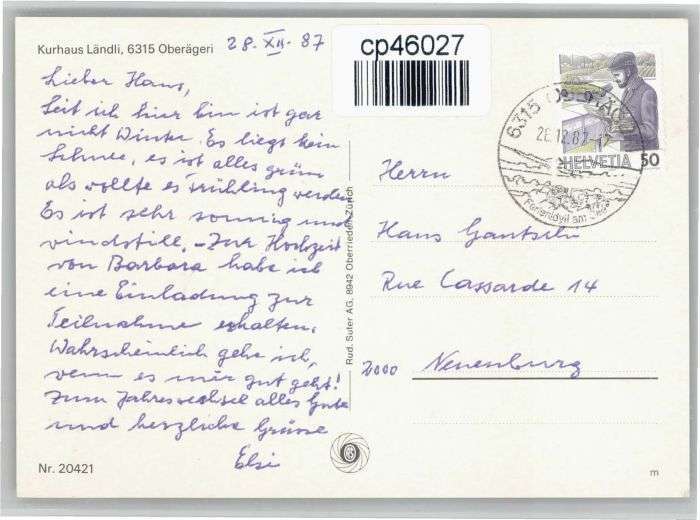 Kurhaus Ländli, 6315 Oberägeri
28. XII. 87
cp46027
Lieber Hans,
Seit ich hier bin ist gar
nicht Winter. Es liegt kein
Schnee, es ist alles grün
als wollte es Frühling werden
Es ist sehr sonnig und
windstill. - Zur Hochzeit
von Barbara habe ich
eine Einladung zur
Teilnahme erhalten.
Wahrscheinlich gehe ich,
wenn es mir gut geht!
Zum Jahreswechsel alles Gute
und herzliche Grüsse
Elsi
Nr. 20421
Rud. Suter AG, 8942 Oberrieden-Zürich
6315
28.12.87-17
Ferienidyll am See
HELVETIA 50
Herrn
Hans Gantschi
Rue Cassarde 14
2000 Neuenburg
m